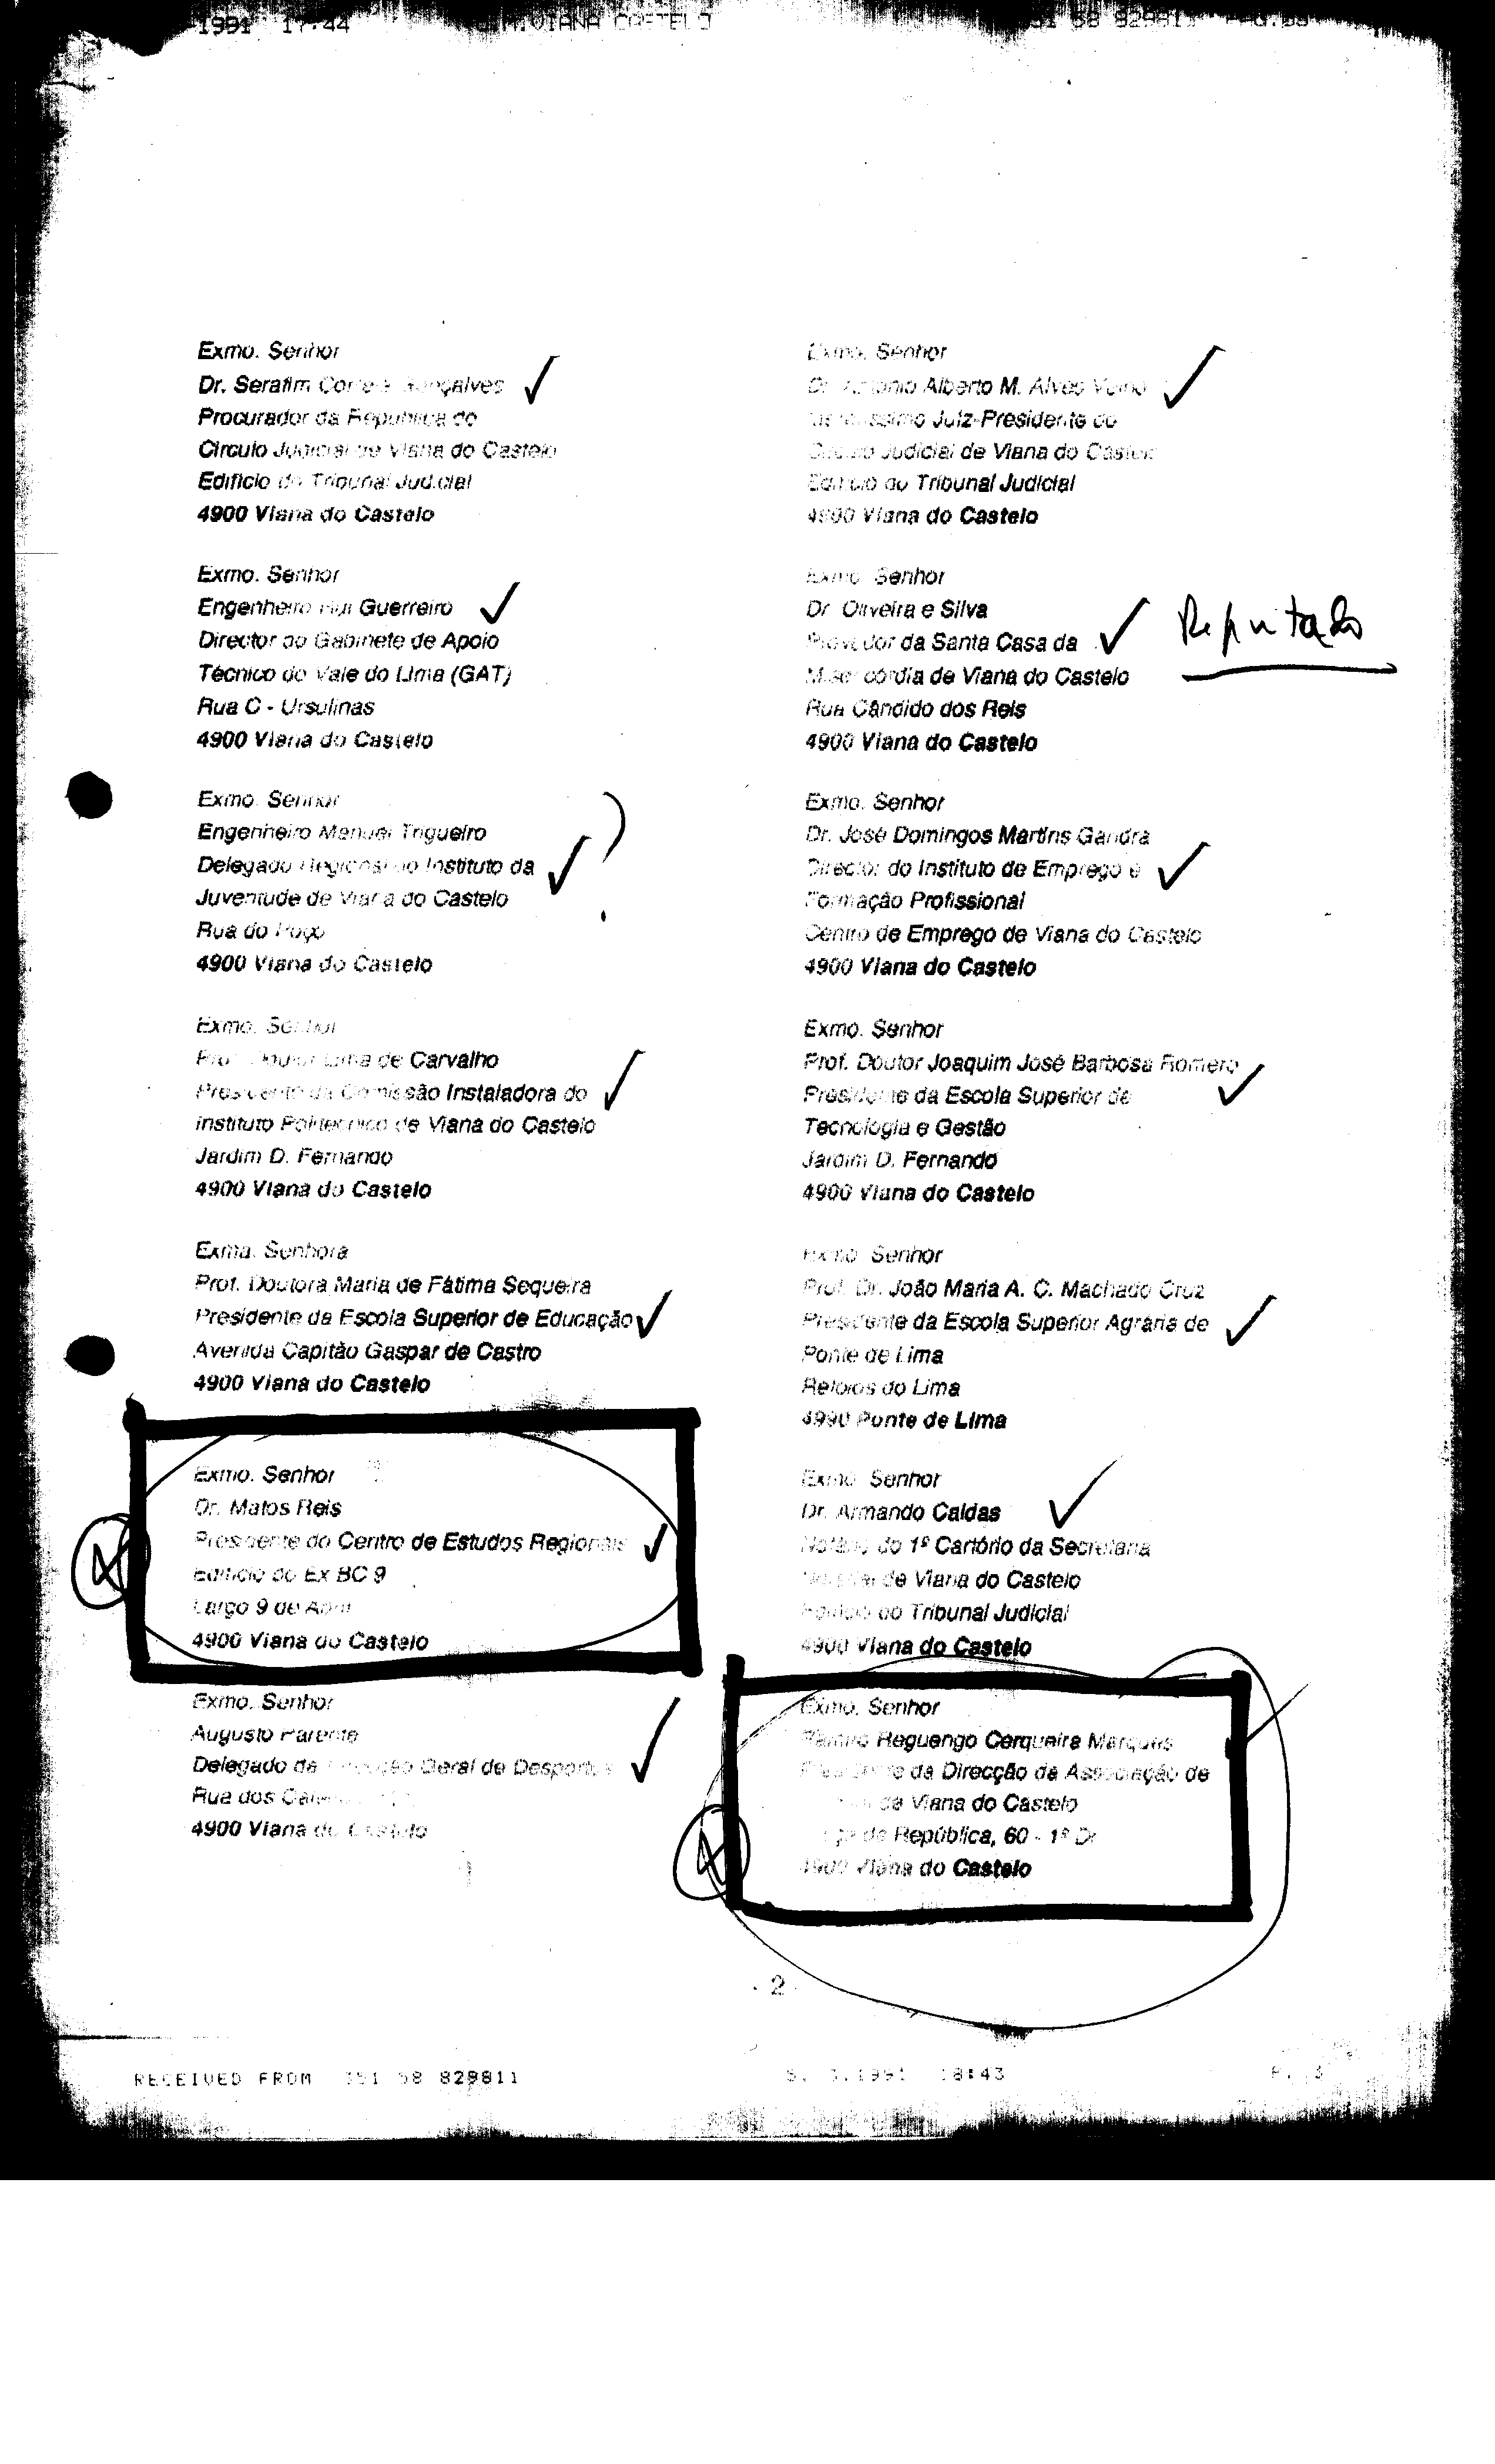 1991 17:44 VIANA CASTELO 58 829811
Exmo. Senhor
Dr. Serafim Correia Gonçalves
Procurador da República do
Circulo Judicial de Viana do Castelo
Edifício do Tribunal Judicial
4900 Viana do Castelo
Exmo. Senhor
Engenheiro Rui Guerreiro
Director do Gabinete de Apoio
Técnico do Vale do Lima (GAT)
Rua C - Ursulinas
4900 Viana do Castelo
Exmo. Senhor
Engenheiro Manuel Trigueiro
Delegado Regional do Instituto da
Juventude de Viana do Castelo
Rua do Poço
4900 Viana do Castelo
Exmo. Senhor
Prof. Doutor Lima de Carvalho
Presidente da Comissão Instaladora do
Instituto Politécnico de Viana do Castelo
Jardim D. Fernando
4900 Viana do Castelo
Exma. Senhora
Prof. Doutora Maria de Fátima Sequeira
Presidente da Escola Superior de Educação
Avenida Capitão Gaspar de Castro
4900 Viana do Castelo
Exmo. Senhor
Dr. Matos Reis
Presidente do Centro de Estudos Regionais
Edifício do Ex BC 9
Largo 9 de Abril
4900 Viana do Castelo
Exmo. Senhor
Augusto Parente
Delegado da Direcção Geral de Desportos
Rua dos
4900 Viana do Castelo
Exmo. Senhor
Dr. António Alberto M. Alves Velho
Juiz-Presidente do
Circulo Judicial de Viana do Castelo
Edifício do Tribunal Judicial
4900 Viana do Castelo
Exmo. Senhor
Dr. Oliveira e Silva
Provedor da Santa Casa da
Misericórdia de Viana do Castelo
Rua Cândido dos Reis
4900 Viana do Castelo
Deputado
Exmo. Senhor
Dr. José Domingos Martins Gandra
Director do Instituto de Emprego e
Formação Profissional
Centro de Emprego de Viana do Castelo
4900 Viana do Castelo
Exmo. Senhor
Prof. Doutor Joaquim José Barbosa Romero
Presidente da Escola Superior de
Tecnologia e Gestão
Jardim D. Fernando
4900 Viana do Castelo
Exmo. Senhor
Prof. Dr. João Maria A. C. Machado Cruz
Presidente da Escola Superior Agrária de
Ponte de Lima
Refoios do Lima
4990 Ponte de Lima
Exmo. Senhor
Dr. Armando Caldas
Notário do 1º Cartório da Secretaria
Notarial de Viana do Castelo
Edifício do Tribunal Judicial
4900 Viana do Castelo
Exmo. Senhor
Reguengo Cerqueira Marques
Presidente da Direcção da Associação de
de Viana do Castelo
da República, 60 - 1º Dt
4900 Viana do Castelo
- 2
RECEIVED FROM 351 58 829811 1991 18:43 P. 3